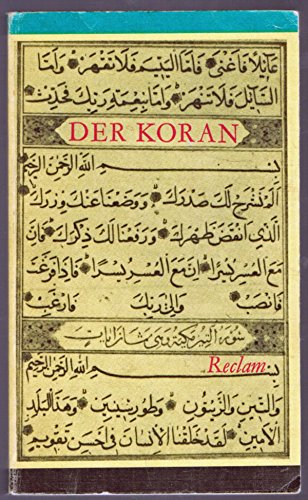 عَائِلًا فَأَغْنَى فَأَمَّا الْيَتِيمَ فَلَا تَقْهَرْ وَأَمَّا
السَّائِلَ فَلَا تَنْهَرْ وَأَمَّا بِنِعْمَةِ رَبِّكَ فَحَدِّثْ
DER KORAN
بِسْمِ اللهِ الرَّحْمٰنِ الرَّحِيمِ
اَلَمْ نَشْرَحْ لَكَ صَدْرَكَ وَوَضَعْنَا عَنْكَ وِزْرَكَ
الَّذِي اَنْقَضَ ظَهْرَكَ وَرَفَعْنَا لَكَ ذِكْرَكَ فَاِنَّ
مَعَ الْعُسْرِ يُسْرًا اِنَّ مَعَ الْعُسْرِ يُسْرًا فَاِذَا فَرَغْتَ
فَانْصَبْ وَاِلَى رَبِّكَ فَارْغَبْ
سورة التين مكية وهي ثمان ايات
Reclam
بِسْمِ اللهِ الرَّحْمٰنِ الرَّحِيمِ
وَالتِّينِ وَالزَّيْتُونِ وَطُورِ سِينِينَ وَهٰذَا الْبَلَدِ
الْاَمِينِ لَقَدْ خَلَقْنَا الْاِنْسَانَ فِي اَحْسَنِ تَقْوِيمٍ